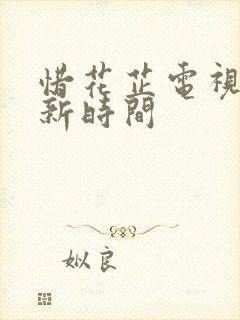 惜花芷電視
新時間
姒良